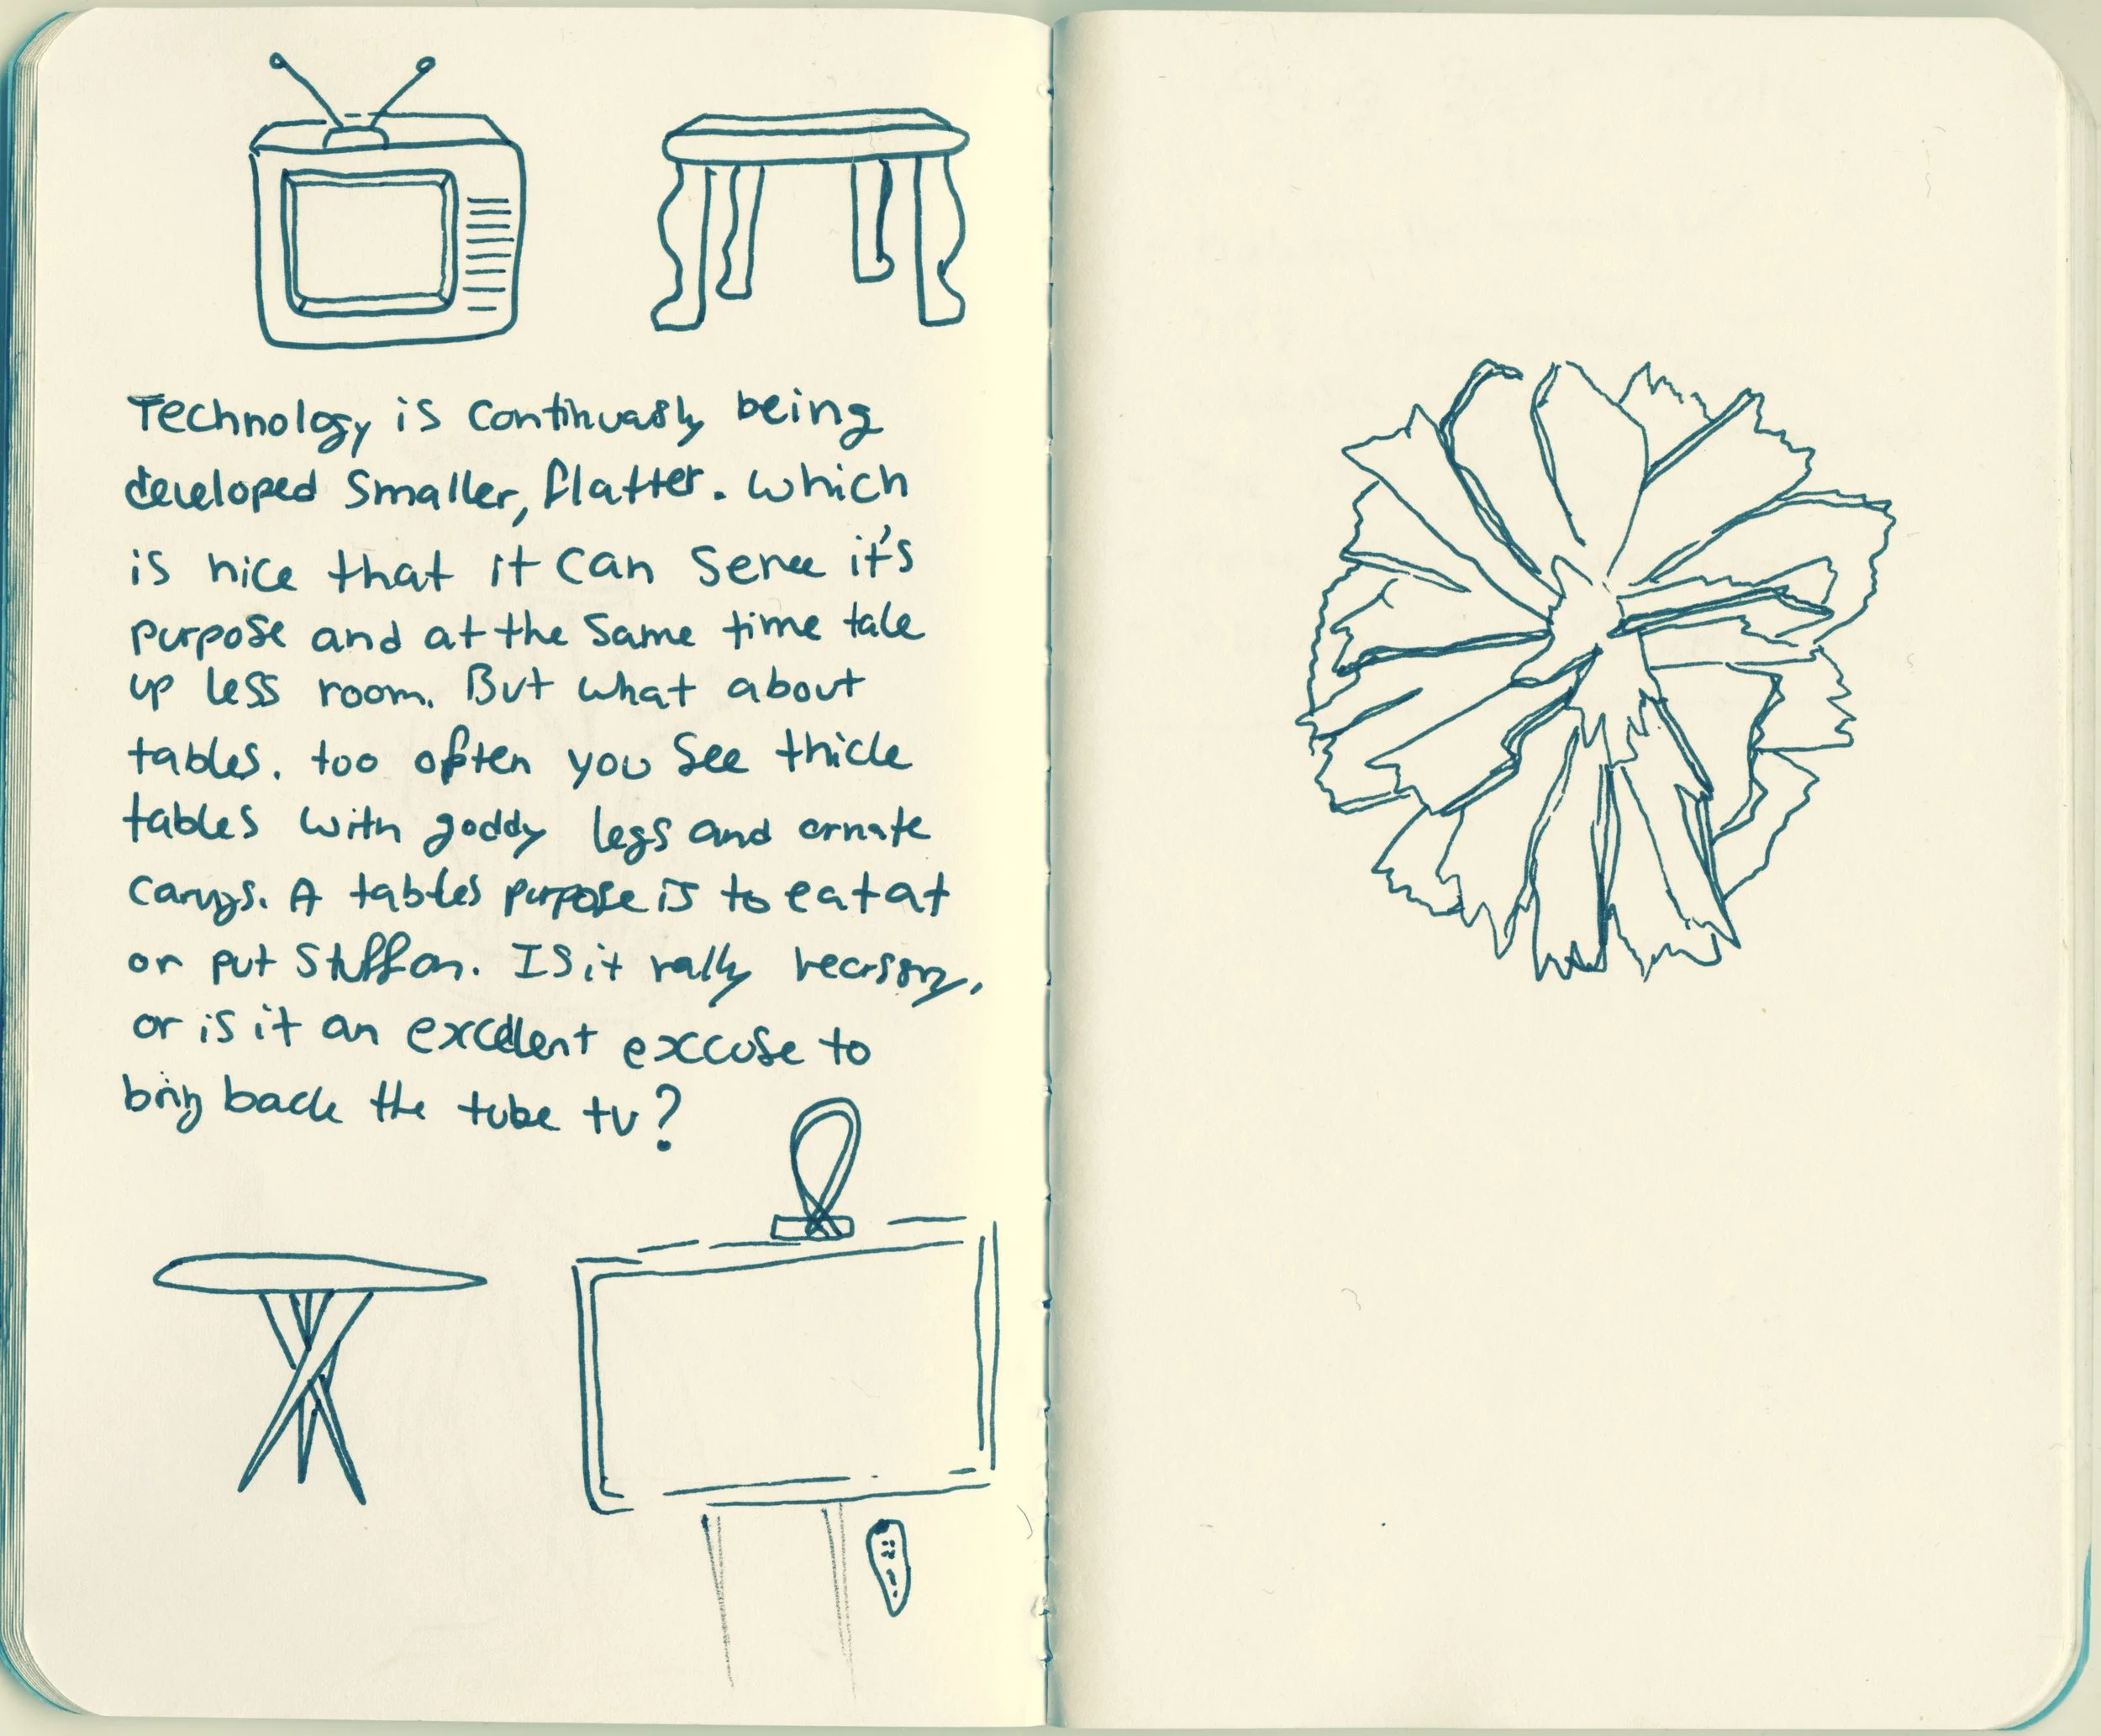 Technology is continuasly being
developed smaller, flatter. which
is nice that it can serve it's
purpose and at the same time take
up less room. But what about
tables. too often you see thick
tables with goddy legs and ornate
carvigs. A tables purpose is to eat at
or put stuff on. Is it rally necessary,
or is it an excellent exccuse to
bring back the tube tv?